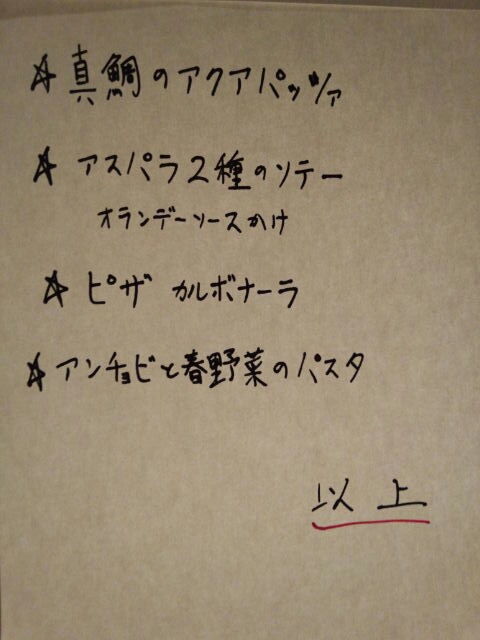 ☆ 真鯛のアクアパッツァ
☆ アスパラ2種のソテー
オランデーソースかけ
☆ ピザ カルボナーラ
☆ アンチョビと春野菜のパスタ
以上